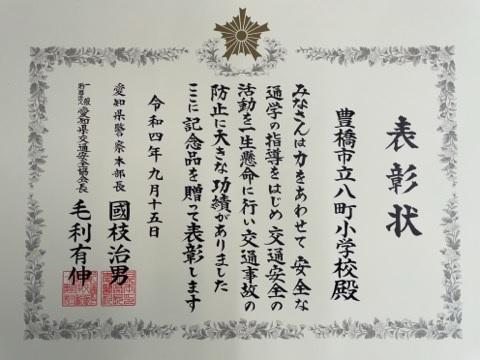 表彰状
豊橋市立八町小学校殿
みなさんは力をあわせて安全な
通学の指導をはじめ交通安全の
活動を一生懸命に行い交通事故の
防止に大きな功績がありました
ここに記念品を贈って表彰します
令和四年九月十五日
愛知県警察本部長 國枝治男
一般財団法人愛知県交通安全協会長 毛利有伸